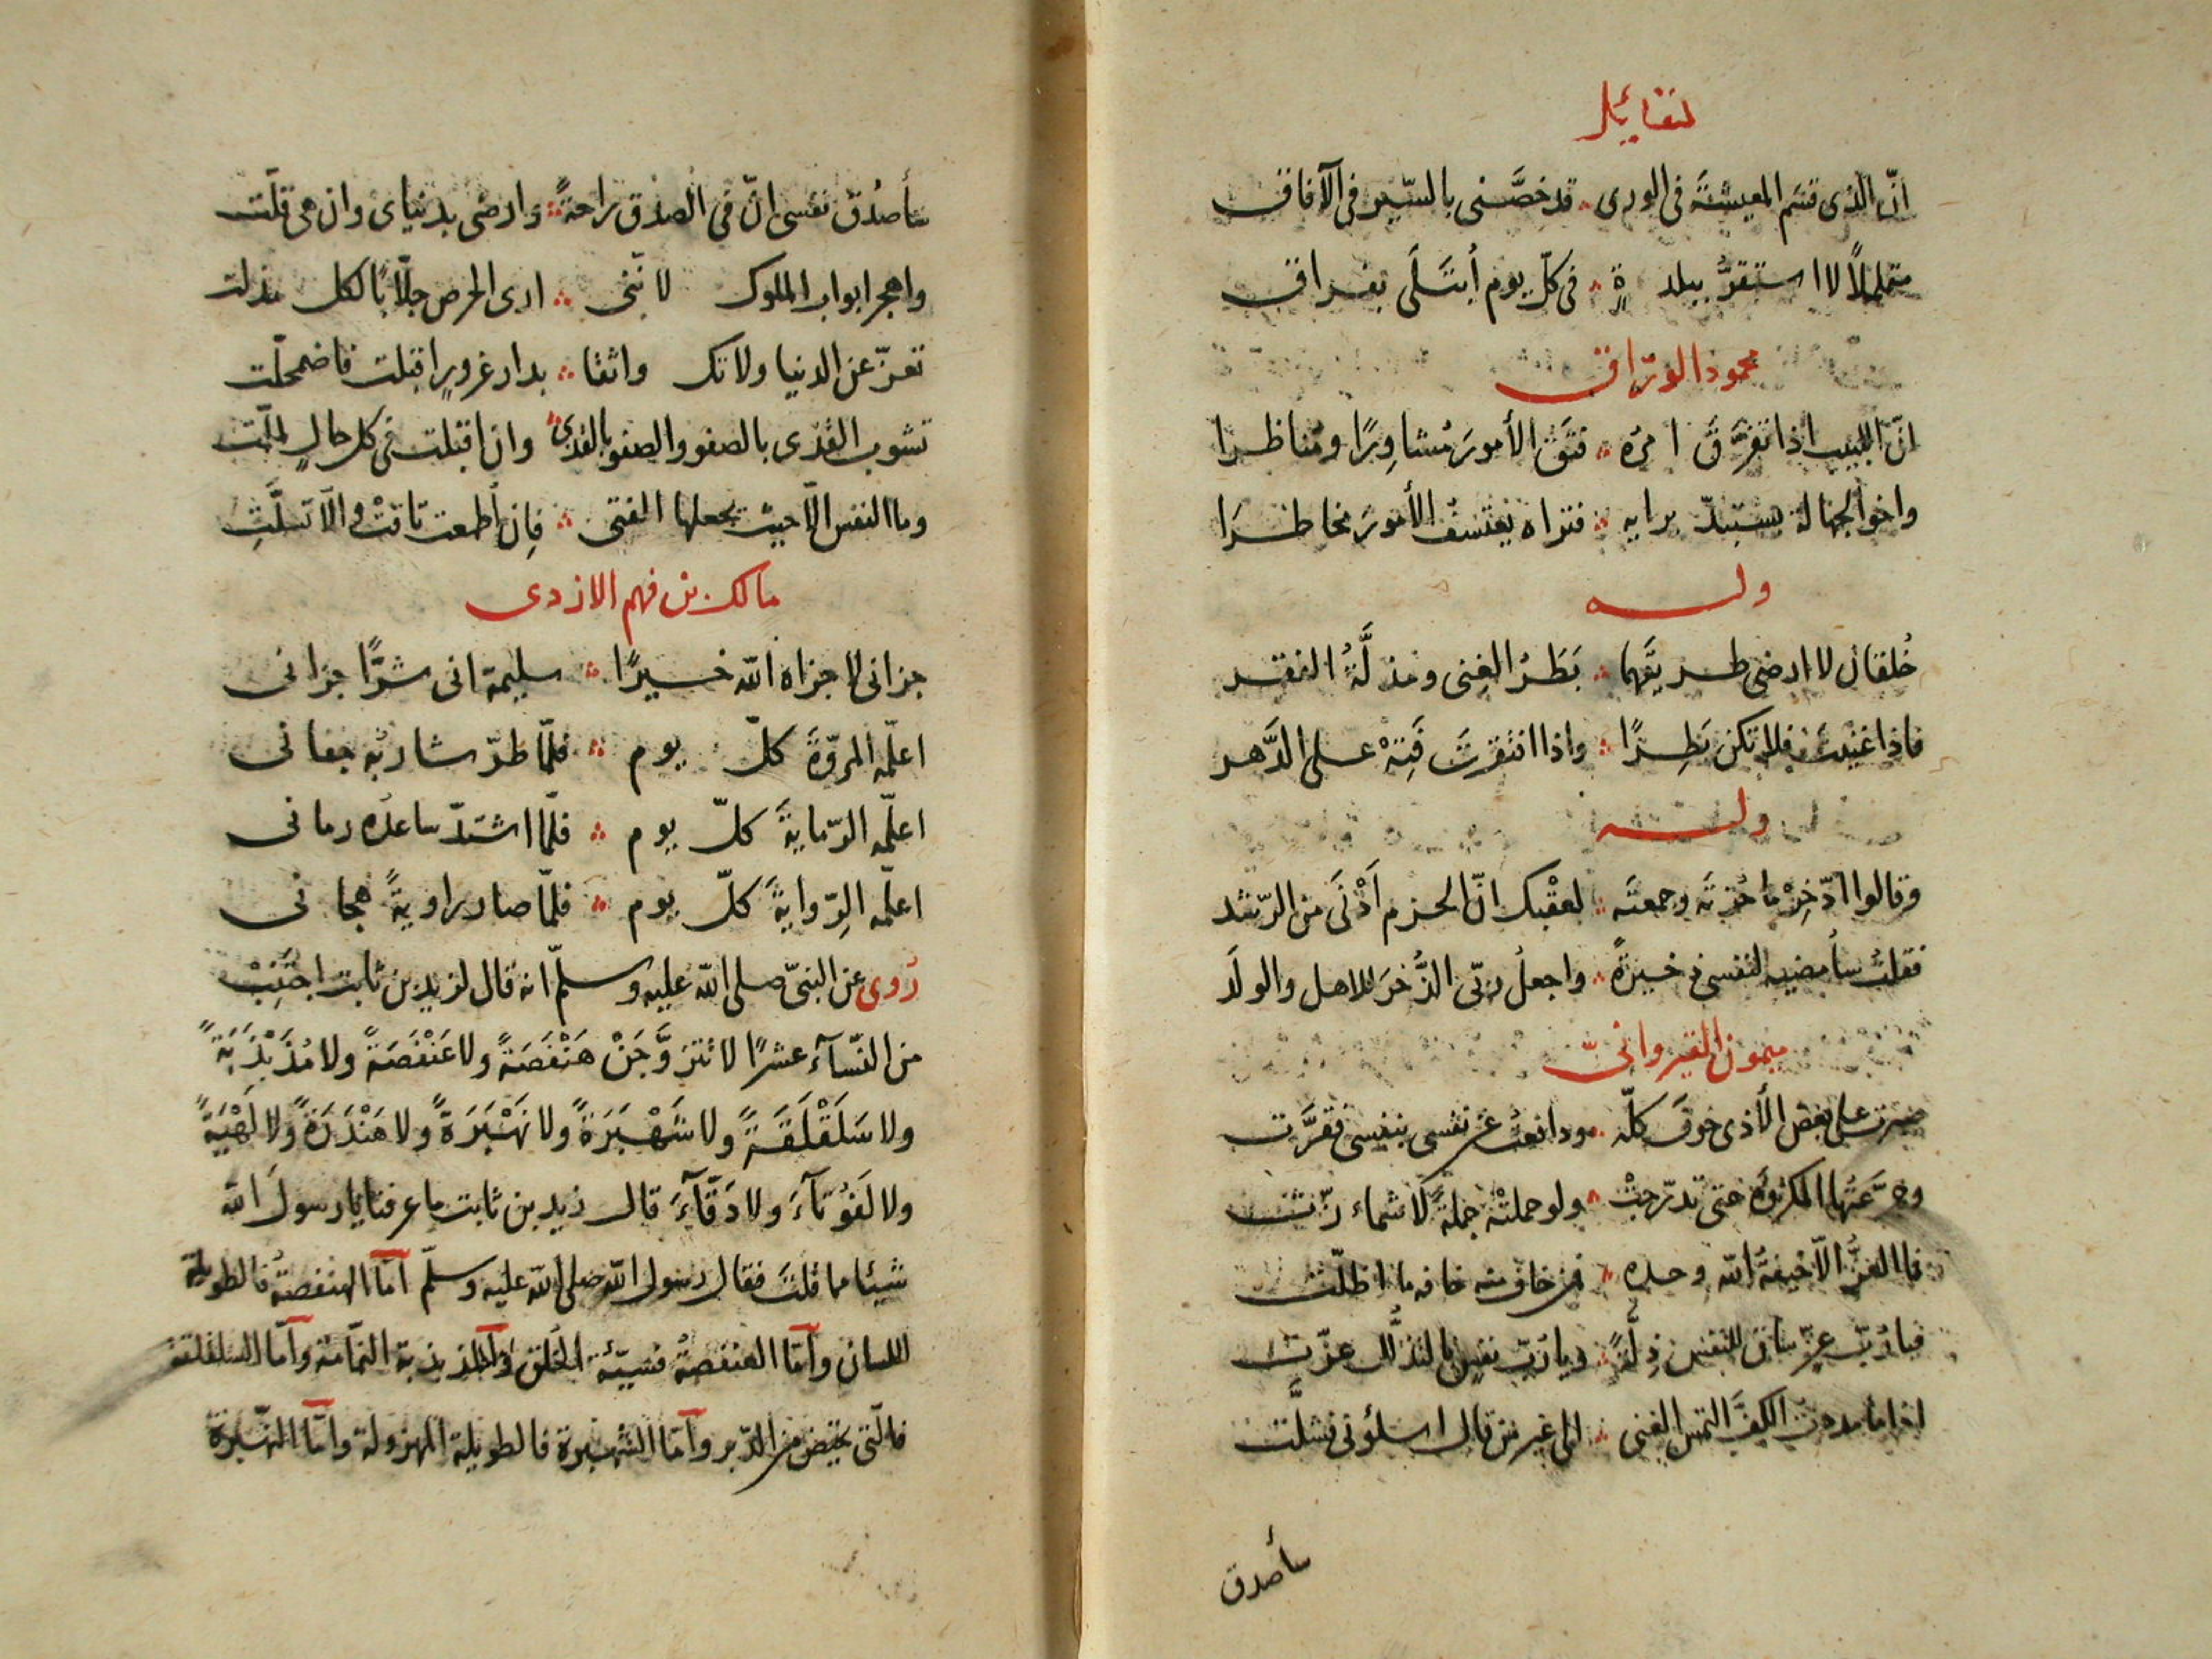 لقائل
انّ الذى قسَم المعيشةَ فى الورى ∴ قد خصَّنى بالسّير فى الآفاق
متململاً لا استقرُّ ببلدةٍ ∴ فى كلّ يوم أُبتَلَى بفراق
محمود الورّاق
انّ اللبيب اذا تفرَّقَ امرُه ∴ فتَقَ الأمورَ مُشاوِرًا ومُناظرا
واخو الجهالة يستبدّ برايه ∴ فتراه يعتسفُ الأمورَ مخاطرَا
وله
خُلقان لا ارضى طريقَهما ∴ بَطَرُ الغِنى ومذلَّةُ الفقر
فاذا غنيتَ فلا تكن بَطِرًا ∴ واذا افتقرتَ فَتِهْ على الدَّهر
وله
وقالوا ادّخِرْ ما حُزتَه وجمعتَه ∴ لعقْبك انّ الحزم أَدْنَى من الرّشد
فقلتُ سأمضيه لنفسى ذخيرةً ∴ واجعلُ ربّى الذُّخرَ للاهل والولَد
ميمون القيروانىّ
صبرت على بعض الأذى خوفَ كلّه ∴ ودافعتُ عن نفسى بنفسى فقرَّت
وجرَّعتُها المكروُهَ حتى تدرّجتْ ∴ ولو حملتْه جملةً لاشمازّت
فما العزُّ الّا خيفةُ الله وحده ∴ من خاف منه خافه ما اظلّت
فيا رُبّ عزٍّ ساق للنفس ذِلَّةً ∴ ويا رُبّ نفسٍ بالتذلُّل عزّت
اذا ما مددت الكفَّ التمس الغنى ∴ الى غير من قال اسئلونى فشلَّت
سأصدق
سأصدُق نفسى انّ فى الصدق راحةً ∴ وارضى بدنياى وان هى قلّت
واهجر ابواب الملوك لانّنى ∴ ارى الحرص جلّابًا لكل مذلت
تعزّ عن الدنيا ولا تك واثقا ∴ بدار غرورٍ اقبلت فاضمحلّت
تشوب القذى بالصفو والصفو بالقذى ∴ وان اقبلت فى كل حالٍ لملّت
وما النفس الّا حيث يجعلها الفتى ∴ فإن أُطمعت تاقتْ والّا تسلَّتِ
مالك بن فهم الازدى
جزانى لا جزاه الله خيرًا ∴ سليمة انى شرًّا جزانى
اعلّمه المروّةَ كلّ يوم ∴ فلمّا طرّ شاربُه جفانى
اعلّمه الرّمايةَ كلّ يوم ∴ فلمّا اشتدّ ساعدُه رمانى
اعلّمه الرِّوايةَ كلّ يوم ∴ فلمّا صار راويةً هجانى
رُوى عن النبىّ صلى الله عليه وسلّم انه قال لزيد بن ثابت اجتَنِبْ
من النّسآء عشرًا لا تتزوَّجَنْ هَنْفَصَةً ولا عَنْفَصَةً ولا مُذَبْذَبَةً
ولا سَلَقْلَقَةً ولا شَهْبَرَةً ولا نَهْبَرَةً ولا هَنْدَرَةً ولا لَهْبَةً
ولا لَفُوتآءَ ولا دَقّآءَ قال زيد بن ثابت ما عرفنا يا رسولَ الله
شيئا مما قلتَ فقال رسول الله صلى الله عليه وسلّم امّا الهنفصةُ فالطويلة
اللسان وامّا العنفصةُ فسيّئة الخُلق وامّا المذبذبة النمّامة وامّا السلقلقة
فالّتى تحيض من الدّبر وامّا الشّهبرة فالطويلة المهزولة وامّا النّهبرة